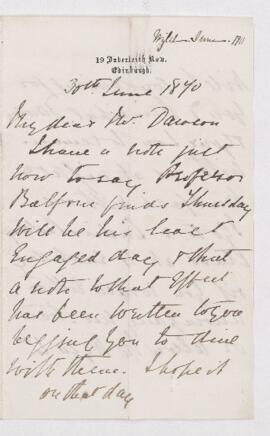 19 Inverleith Row.
Edinburgh.
30th June 1870
My dear Mr. Dawson
I have a note just
now to say Professor
Balfour finds Thursday
will be his least
Engaged day & that
a note to that Effect
has been written to you
begging you to dine
with them. I hope it
on that day